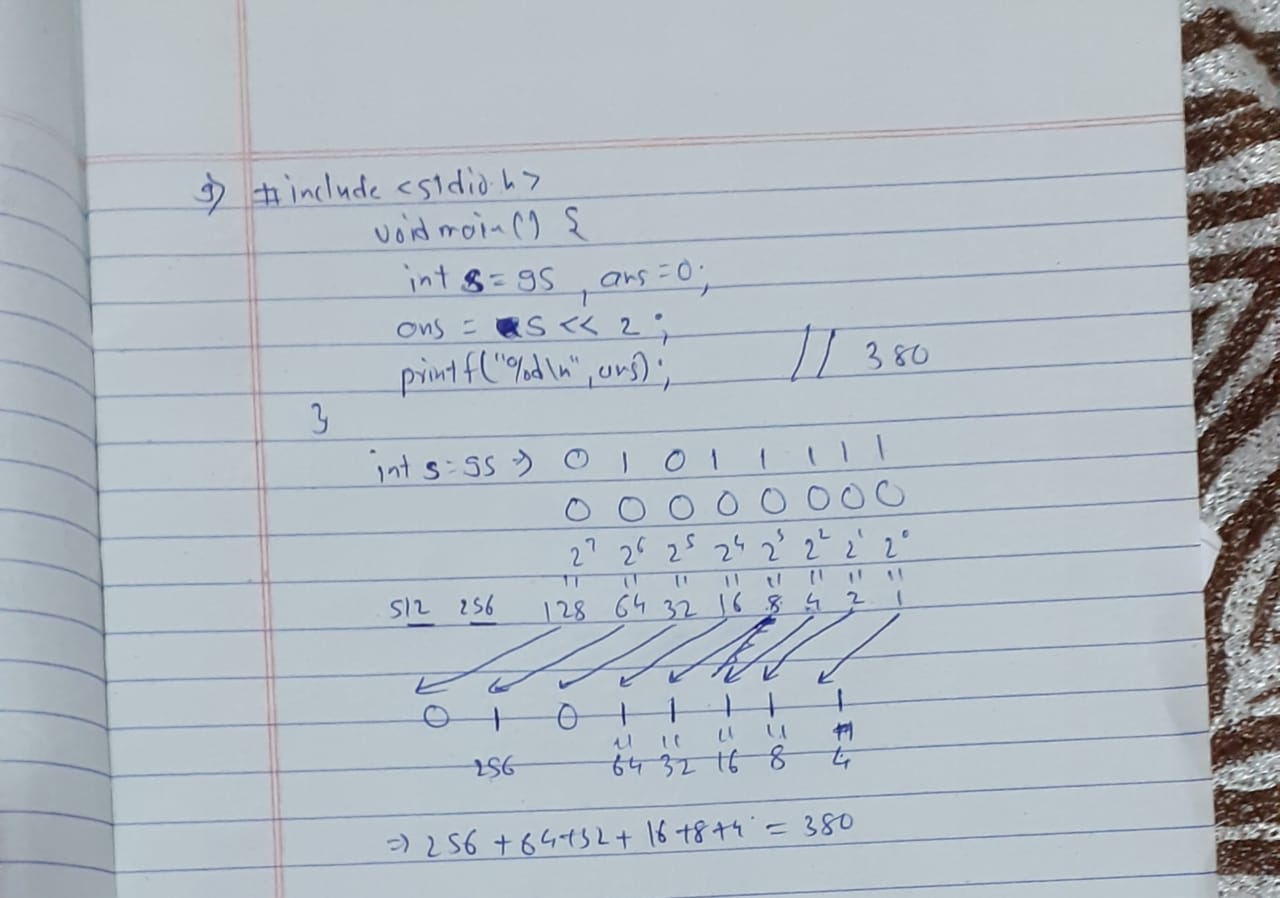 9) #include <stdio.h>
void main() {
int s = 95, ans = 0;
ans = s << 2;
printf("%d\n", ans); // 380
}
int s = 95 ⇒ 0 1 0 1 1 1 1 1
0 0 0 0 0 0 0 0
2⁷ 2⁶ 2⁵ 2⁴ 2³ 2² 2¹ 2⁰
" " " " " " " "
512 256 128 64 32 16 8 4 2 1
0 1 0 1 1 1 1 1
" " " " "
256 64 32 16 8 4
⇒ 256 + 64 + 32 + 16 + 8 + 4 = 380